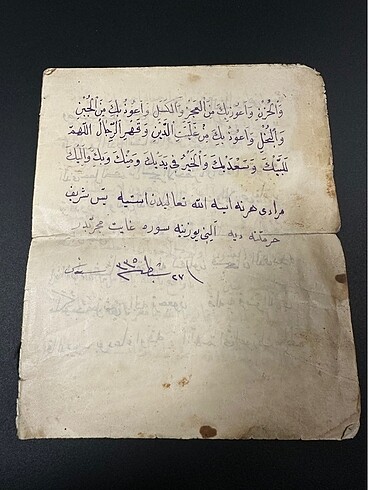 وَالْحُزْنِ وَاَعُوذُ بِكَ مِنَ الْعَجْزِ وَالْكَسَلِ وَاَعُوذُ بِكَ مِنَ الْجُبْنِ
وَالْبُخْلِ وَاَعُوذُ بِكَ مِنْ غَلَبَةِ الدَّيْنِ وَقَهْرِ الرِّجَالِ اللّٰهُمَّ
لَبَّيْكَ وَسَعْدَيْكَ وَالْخَيْرُ فِي يَدَيْكَ وَمِنْكَ وَبِكَ وَاِلَيْكَ
مرادى هرنه ايسه الله تعاليدن استيه يس شريف
حرمتنه ديه الينى يوزينه سوره غايت مجربدر
٢٧ شباط ٣٣٥